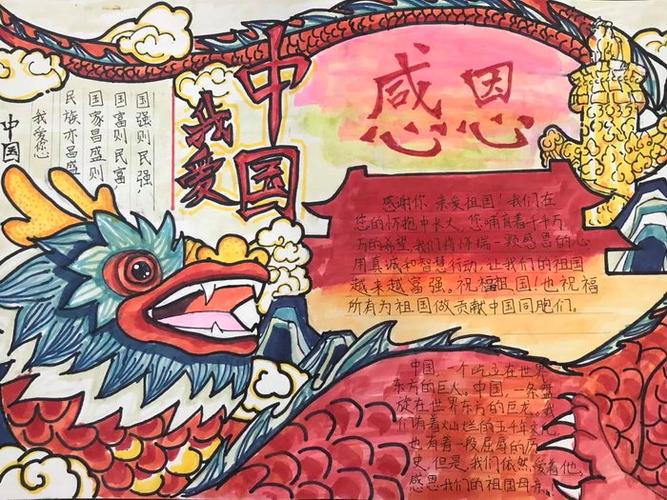 国强则民强
国富则民富
国家昌盛则
民族亦昌盛
我爱您
中国
我爱
中国
感恩
感谢你,亲爱祖国!我们在
您的怀抱中长大,您哺育着千千万
万的希望,我们怀揣一颗感恩的心
用真诚和智慧行动,让我们的祖国
越来越富强。祝福祖国!也祝福
所有为祖国做贡献中国同胞们。
中国,一个屹立在世界
东方的巨人。中国,一条盘
旋在世界东方的巨龙。我
们有着灿烂的五千年文化,
也有着一段屈辱的历
史,但是,我们依然爱着他,
感恩我们的祖国母亲。